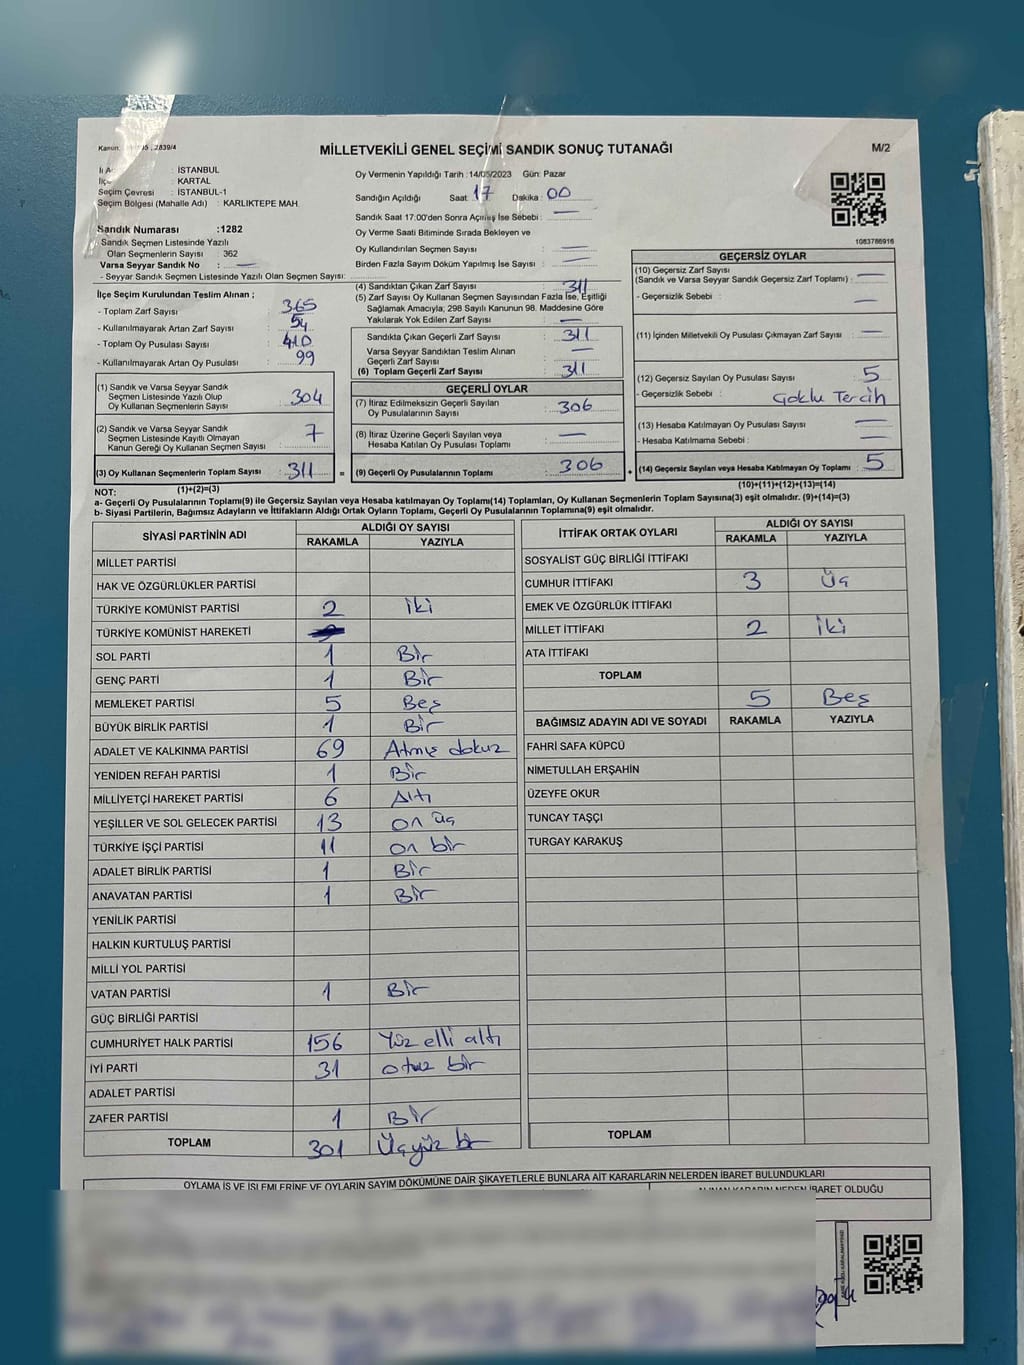 MİLLETVEKİLİ GENEL SEÇİMİ SANDIK SONUÇ TUTANAĞI
M/2
: İSTANBUL
: KARTAL
Seçim Çevresi : İSTANBUL-1
Seçim Bölgesi (Mahalle Adı) : KARLIKTEPE MAH.
Sandık Numarası :1282
Sandık Seçmen Listesinde Yazılı
Olan Seçmenlerin Sayısı : 362
Varsa Seyyar Sandık No : —
- Seyyar Sandık Seçmen Listesinde Yazılı Olan Seçmen Sayısı:
Oy Vermenin Yapıldığı Tarih :14/05/2023 Gün: Pazar
Sandığın Açıldığı Saat: 17 Dakika: 00
Sandık Saat 17:00'den Sonra Açılmış İse Sebebi : —
Oy Verme Saati Bitiminde Sırada Bekleyen ve
Oy Kullandırılan Seçmen Sayısı : —
Birden Fazla Sayım Döküm Yapılmış İse Sayısı : —
1083786916
İlçe Seçim Kurulundan Teslim Alınan ;
- Toplam Zarf Sayısı : 365
- Kullanılmayarak Artan Zarf Sayısı : 54
- Toplam Oy Pusulası Sayısı : 410
- Kullanılmayarak Artan Oy Pusulası : 99
(1) Sandık ve Varsa Seyyar Sandık
Seçmen Listesinde Yazılı Olup
Oy Kullanan Seçmenlerin Sayısı : 304
(2) Sandık ve Varsa Seyyar Sandık
Seçmen Listesinde Kayıtlı Olmayan
Kanun Gereği Oy Kullanan Seçmen Sayısı : 7
(3) Oy Kullanan Seçmenlerin Toplam Sayısı : 311
(1)+(2)=(3)
(4) Sandıktan Çıkan Zarf Sayısı : 311
(5) Zarf Sayısı Oy Kullanan Seçmen Sayısından Fazla İse, Eşitliği
Sağlamak Amacıyla; 298 Sayılı Kanunun 98. Maddesine Göre
Yakılarak Yok Edilen Zarf Sayısı : —
Sandıkta Çıkan Geçerli Zarf Sayısı : 311
Varsa Seyyar Sandıktan Teslim Alınan
Geçerli Zarf Sayısı : —
(6) Toplam Geçerli Zarf Sayısı : 311
GEÇERLİ OYLAR
(7) İtiraz Edilmeksizin Geçerli Sayılan
Oy Pusulalarının Sayısı : 306
(8) İtiraz Üzerine Geçerli Sayılan veya
Hesaba Katılan Oy Pusulası Toplamı : —
= (9) Geçerli Oy Pusulalarının Toplamı : 306
GEÇERSİZ OYLAR
(10) Geçersiz Zarf Sayısı
(Sandık ve Varsa Seyyar Sandık Geçersiz Zarf Toplamı) : —
- Geçersizlik Sebebi : —
(11) İçinden Milletvekili Oy Pusulası Çıkmayan Zarf Sayısı : —
(12) Geçersiz Sayılan Oy Pusulası Sayısı : 5
- Geçersizlik Sebebi : Çoklu Tercih
(13) Hesaba Katılmayan Oy Pusulası Sayısı : —
- Hesaba Katılmama Sebebi : —
+ (14) Geçersiz Sayılan veya Hesaba Katılmayan Oy Toplamı : 5
(10)+(11)+(12)+(13)=(14)
NOT:
a- Geçerli Oy Pusulalarının Toplamı(9) ile Geçersiz Sayılan veya Hesaba katılmayan Oy Toplamı(14) Toplamları, Oy Kullanan Seçmenlerin Toplam Sayısına(3) eşit olmalıdır. (9)+(14)=(3)
b- Siyasi Partilerin, Bağımsız Adayların ve İttifakların Aldığı Ortak Oyların Toplamı, Geçerli Oy Pusulalarının Toplamına(9) eşit olmalıdır.
SİYASİ PARTİNİN ADI ALDIĞI OY SAYISI
RAKAMLA YAZIYLA
MİLLET PARTİSİ
HAK VE ÖZGÜRLÜKLER PARTİSİ
TÜRKİYE KOMÜNİST PARTİSİ 2 İki
TÜRKİYE KOMÜNİST HAREKETİ
SOL PARTİ 1 Bir
GENÇ PARTİ 1 Bir
MEMLEKET PARTİSİ 5 Beş
BÜYÜK BİRLİK PARTİSİ 1 Bir
ADALET VE KALKINMA PARTİSİ 69 Atmış dokuz
YENİDEN REFAH PARTİSİ 1 Bir
MİLLİYETÇİ HAREKET PARTİSİ 6 Altı
YEŞİLLER VE SOL GELECEK PARTİSİ 13 on üç
TÜRKİYE İŞÇİ PARTİSİ 11 on bir
ADALET BİRLİK PARTİSİ 1 Bir
ANAVATAN PARTİSİ 1 Bir
YENİLİK PARTİSİ
HALKIN KURTULUŞ PARTİSİ
MİLLİ YOL PARTİSİ
VATAN PARTİSİ 1 Bir
GÜÇ BİRLİĞİ PARTİSİ
CUMHURİYET HALK PARTİSİ 156 Yüz elli altı
İYİ PARTİ 31 otuz bir
ADALET PARTİSİ
ZAFER PARTİSİ 1 Bir
TOPLAM 301 Üçyüz bir
İTTİFAK ORTAK OYLARI ALDIĞI OY SAYISI
RAKAMLA YAZIYLA
SOSYALİST GÜÇ BİRLİĞİ İTTİFAKI
CUMHUR İTTİFAKI 3 Üç
EMEK VE ÖZGÜRLÜK İTTİFAKI
MİLLET İTTİFAKI 2 İki
ATA İTTİFAKI
TOPLAM
5 Beş
BAĞIMSIZ ADAYIN ADI VE SOYADI RAKAMLA YAZIYLA
FAHRİ SAFA KÜPCÜ
NİMETULLAH ERŞAHİN
ÜZEYFE OKUR
TUNCAY TAŞÇI
TURGAY KARAKUŞ
TOPLAM
OYLAMA İŞ VE İŞLEMLERİNE VE OYLARIN SAYIM DÖKÜMÜNE DAİR ŞİKAYETLERLE BUNLARA AİT KARARLARIN NELERDEN İBARET BULUNDUKLARI
ALINAN KARARIN NEDEN İBARET OLDUĞU